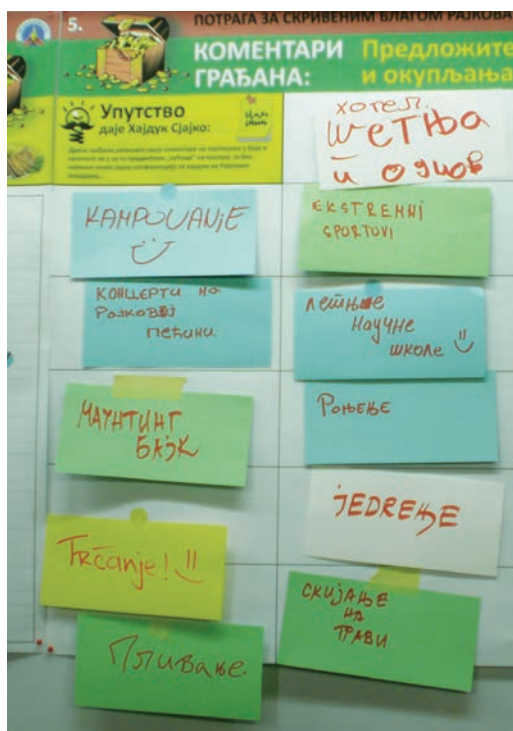 5.
ПОТРАГА ЗА СКРИВЕНИМ БЛАГОМ РАЈКОВА
КОМЕНТАРИ
ГРАЂАНА:
Предложите
и окупљања
Упутство
даје Хајдук Сјајко:
хотел.
ШЕТЊА
и одмор
КАМРОVАЊЕ
EKSTREMNI
SPORTOVI
КОНЦЕРТИ на
РАЈКОВОЈ
ПЕЋИНИ.
летње
Научне
школе
МАУНТИНГ
БАЈК
РОЊЕЊЕ
Trčanje!
ЈEDREЊE
Пливање.
СКИЈАЊЕ
НА
ТРАВИ